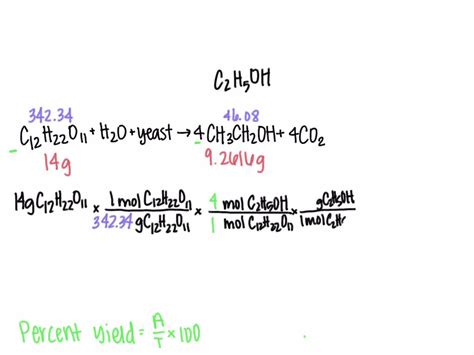 C2H5OH
342.34 46.08
C12H22O11 + H2O + yeast → 4CH3CH2OH + 4CO2
14g 9.2616g
14g C12H22O11 × 1 mol C12H22O11 / 342.34 g C12H22O11 × 4 mol C2H5OH / 1 mol C12H22O11 × g C2H5OH / 1 mol C2H
Percent yield = A/T × 100